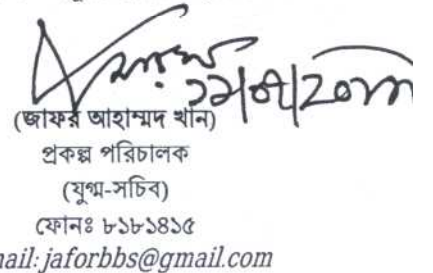 (জাফর আহাম্মদ খান)
প্রকল্প পরিচালক
(যুগ্ম-সচিব)
ফোনঃ ৮১৮১৪১৫
mail: jaforbbs@gmail.com